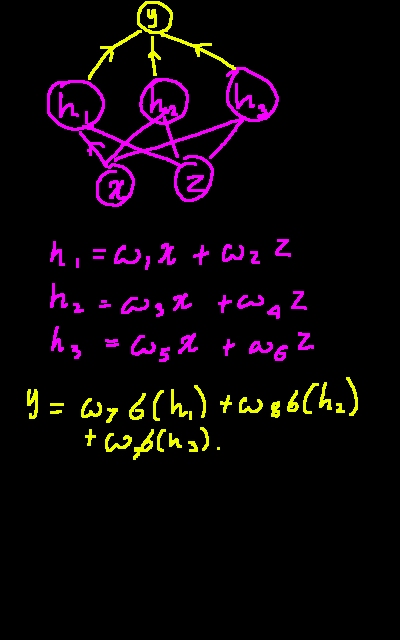 y
h₁ h₂ h₃
x z
h₁ = ω₁x + ω₂ z
h₂ = ω₃x + ω₄ z
h₃ = ω₅x + ω₆ z
y = ω₇ σ(h₁) + ω₈ σ(h₂)
+ ω₉σ(h₃).